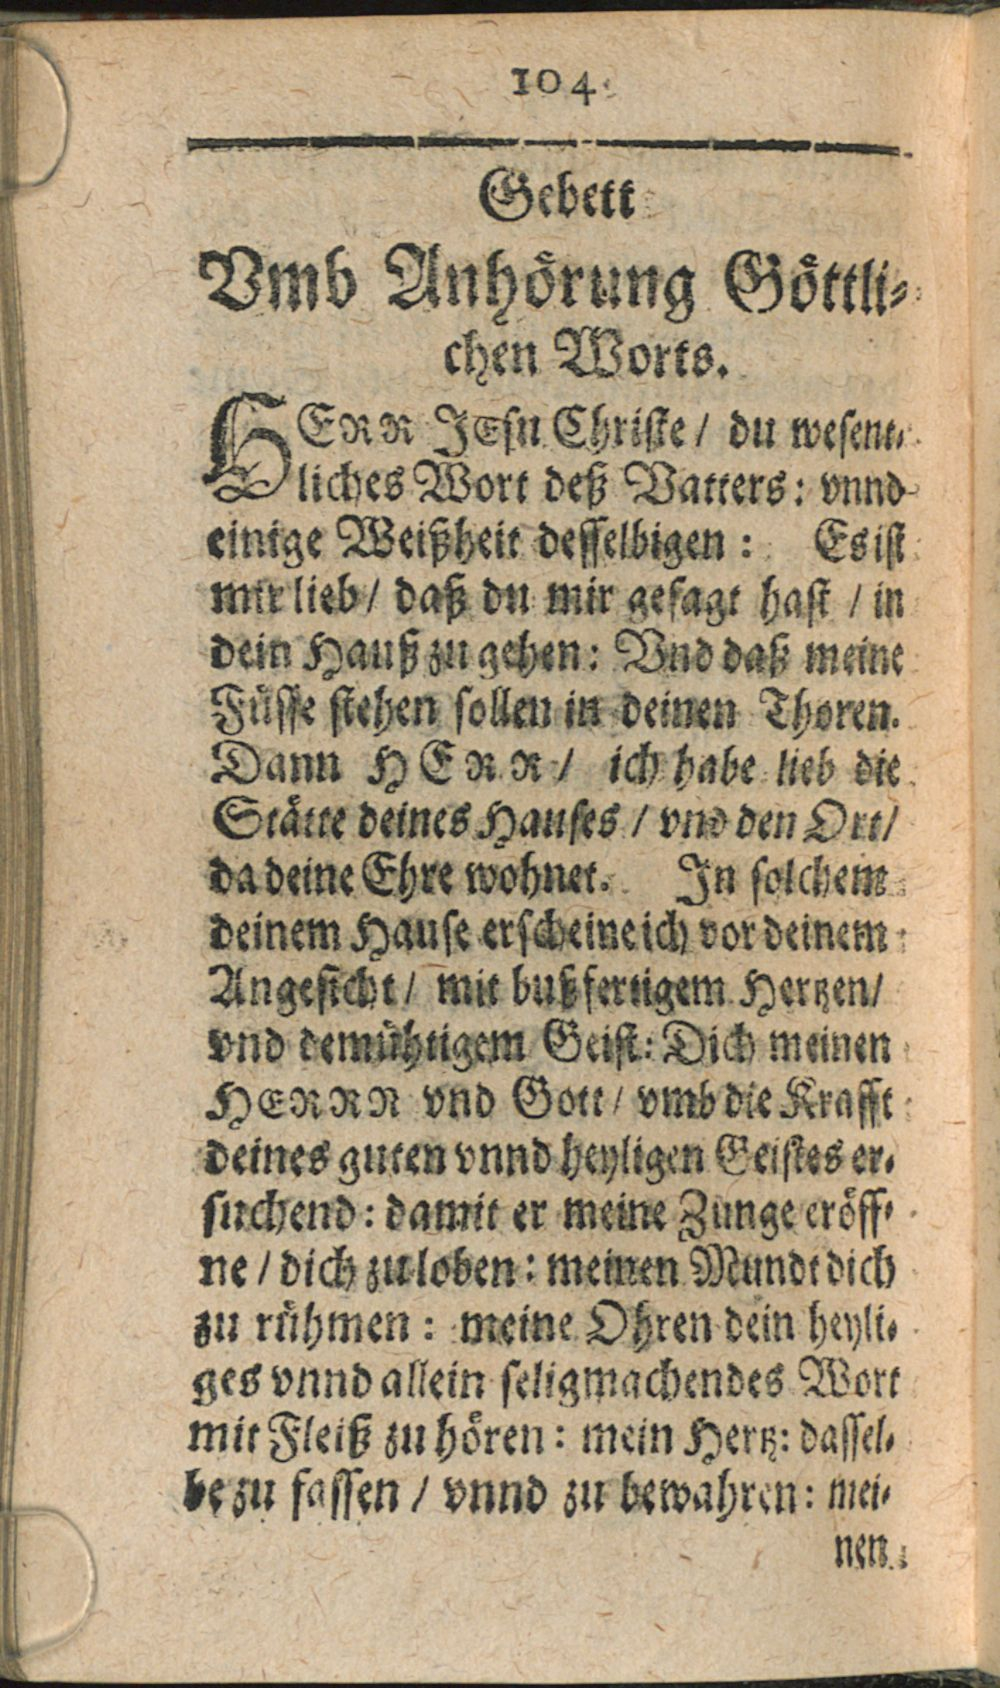 104.
Gebett
Vmb Anhörung Göttli-
chen Worts.
HERR JEsu Christe / du wesent-
liches Wort deß Vatters: vnnd
einige Weißheit desselbigen: Es ist
mir lieb / daß du mir gesagt hast / in
dein Hauß zu gehen: Vnd daß meine
Füsse stehen sollen in deinen Thoren.
Dann HERR / ich habe lieb die
Stätte deines Hauses / vnd den Ort /
da deine Ehre wohnet. In solchem
deinem Hause erscheine ich vor deinem
Angesicht / mit bußfertigem Hertzen /
vnd demühtigem Geist: Dich meinen
HERRN vnd Gott / vmb die Krafft
deines guten vnnd heyligen Geistes er-
suchend: damit er meine Zunge eröff-
ne / dich zu loben: meinen Mundt dich
zu rühmen: meine Ohren dein heyli-
ges vnnd allein seligmachendes Wort
mit Fleiß zu hören: mein Hertz: dassel-
be zu fassen / vnnd zu bewahren: mei-
nen